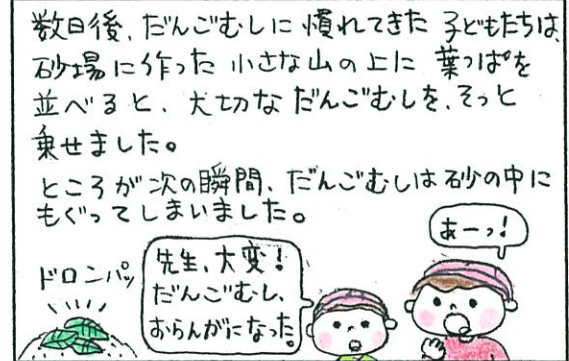 数日後、だんごむしに慣れてきた子どもたちは、
砂場に作った小さな山の上に葉っぱを
並べると、大切なだんごむしを、そっと
乗せました。
ところが次の瞬間、だんごむしは砂の中に
もぐってしまいました。
あーっ!
先生、大変!
だんごむし、
おらんがになった。
ドロンパッ